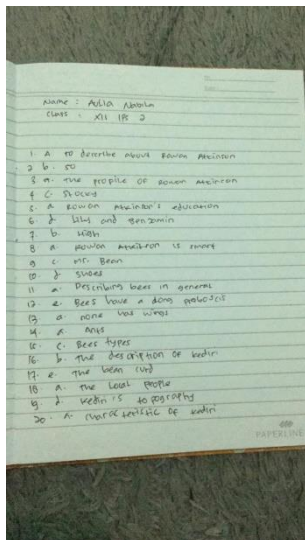 Name : Aulia Nabila
Class : XII IPS 2
1. A to describe about Rowan Atkinson
2 b. 50
3. a. The profile of Rowan Atkinson
4 C. Stocky
5. a Rowan Atkinson's education
6. d. Lily and Benjamin
7. b. High
8 a. Rowan Atkinson is smart
9 c. Mr. Bean
10. d shoes
11 a. Describing bees in general
12. e. Bees have a long proboscis
13. a. none has wings
14. a. Ants
15. c. Bees types
16. b. The description of Kediri
17. e. The bean curd
18. a. The Local people
19. d. Kediri is topography
20. A. characteristic of Kediri
PAPERLINE